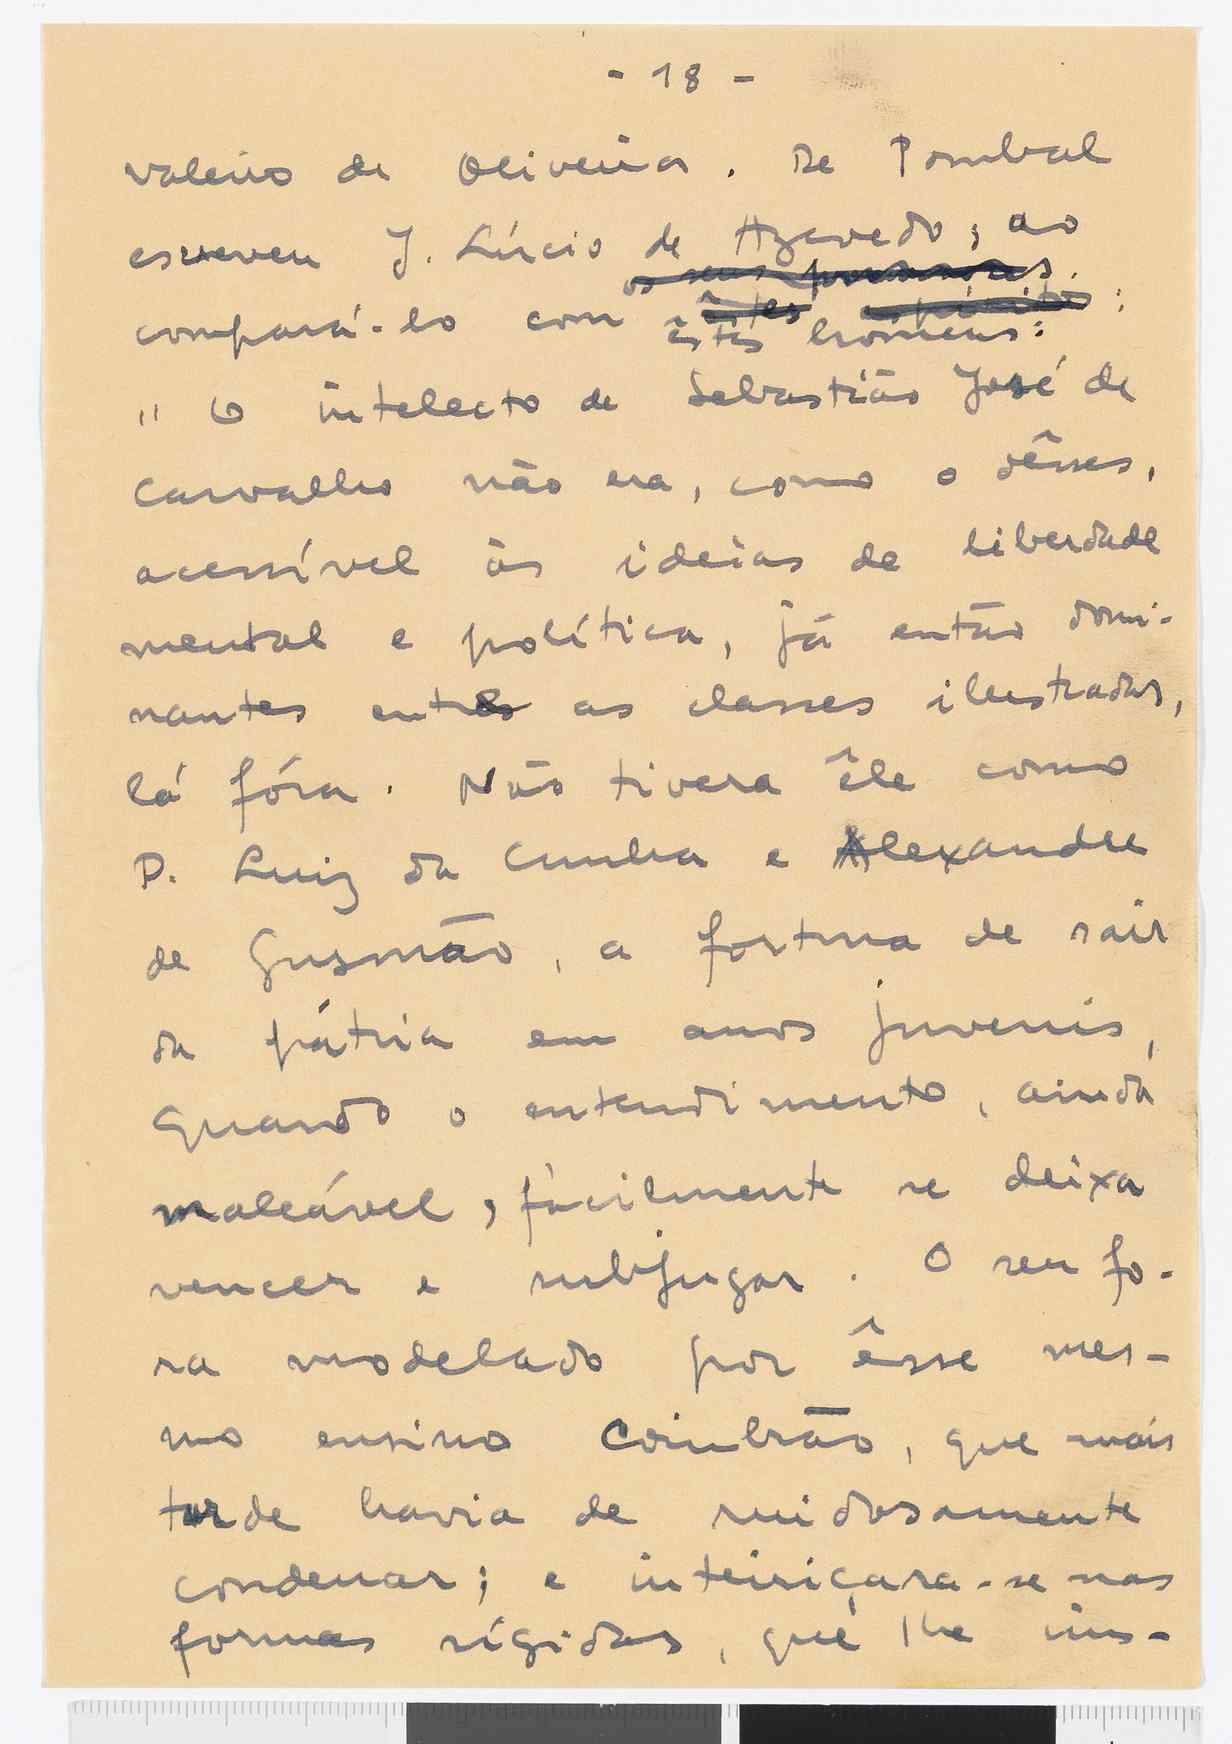 - 18 -
valeiro de Oliveira. De Pombal
escreveu J. Lúcio de Azevedo, ao
os seus
compará-lo com êstes
êstes homens:
" O intelecto de Sebastião José de
Carvalho não era, como o dêsses,
acessível às ideias de liberdade
mental e política, já então domi-
nantes entre as classes ilustradas,
lá fóra. Não tivera êle como
D. Luiz da Cunha e Alexandre
de Gusmão, a fortuna de sair
da pátria em anos juvenis,
quando o entendimento, ainda
maleável, fàcilmente se deixa
vencer e subjugar. O seu fo-
ra modelado por êsse mes-
mo ensino coimbrão, que mais
tarde havia de ruidosamente
condenar; e inteiriçara-se nas
formas rígidas, que lhe im-